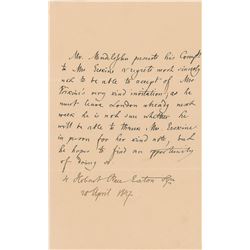 Mr. Mendelssohn presents his Compts
to Mrs. Erskine & regrets most sincerely
not to be able to accept of Mrs
Erskine's very kind invitation, as he
must leave London already next
week he is not sure whether he
will be able to thank Mrs. Erskine
in person for her kind note, but
he hopes to find an opportunity
of doing so.
4 Hobart Place Eaton Sqre
20 April 1847.